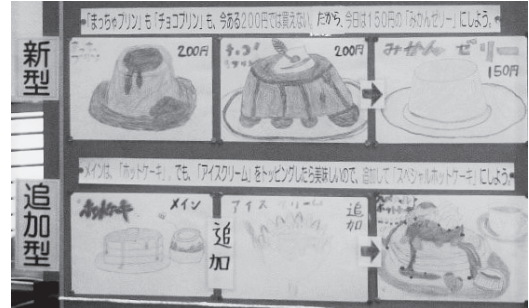 「まっちゃプリン」も「チョコプリン」も、今ある200円では買えない。だから、今日は150円の「みかんゼリー」にしよう。
新型
200円
200円
みかん ゼリー
150円
メインは、「ホットケーキ」。でも、「アイスクリーム」をトッピングしたら美味しいので、追加して「スペシャルホットケーキ」にしよう。
追加型
ホットケーキ
メイン
追加
アイス
追加